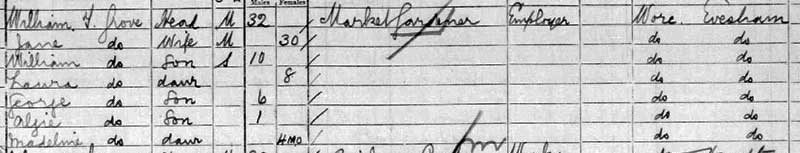 Males Females
William F. Grove Head M 32 Market Gardener Employer Worc. Evesham
Jane do Wife M 30 do do
William do Son S 10 do do
Laura do daur 8 do do
George do Son 6 do do
Algie do Son 1 do do
Madeline do daur 4 mo do do